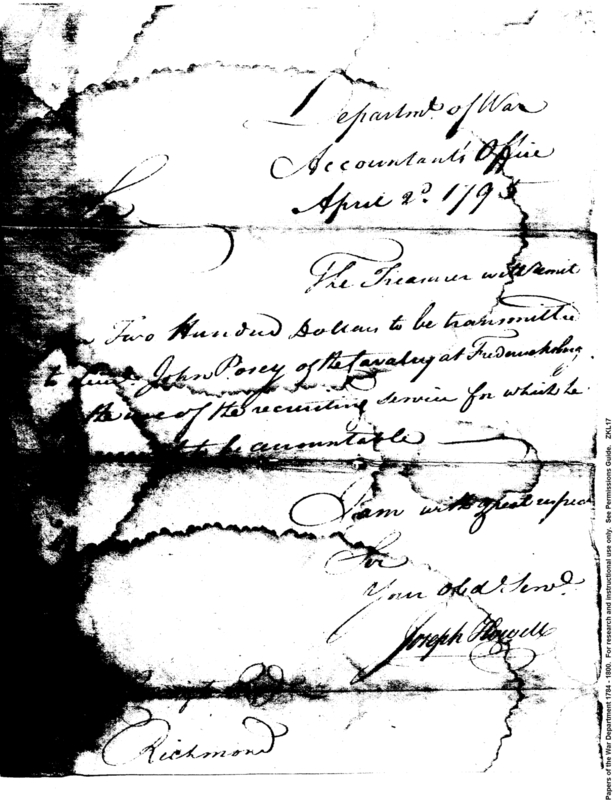 Departmt. of War
Accountant's Office
April 2d. 1795
The Treasurer will remit
Two Hundred Dollars to be transmitted
to Lieut. John Posey of the Cavalry at Fredericksburg
the use of the recruiting service for which he
to be accountable
I am with great respect
Sir
Your Obdt. Servt.
Joseph Howell
Richmond
Papers of the War Department 1784 - 1800. For research and instructional use only. See Permissions Guide. ZKL17